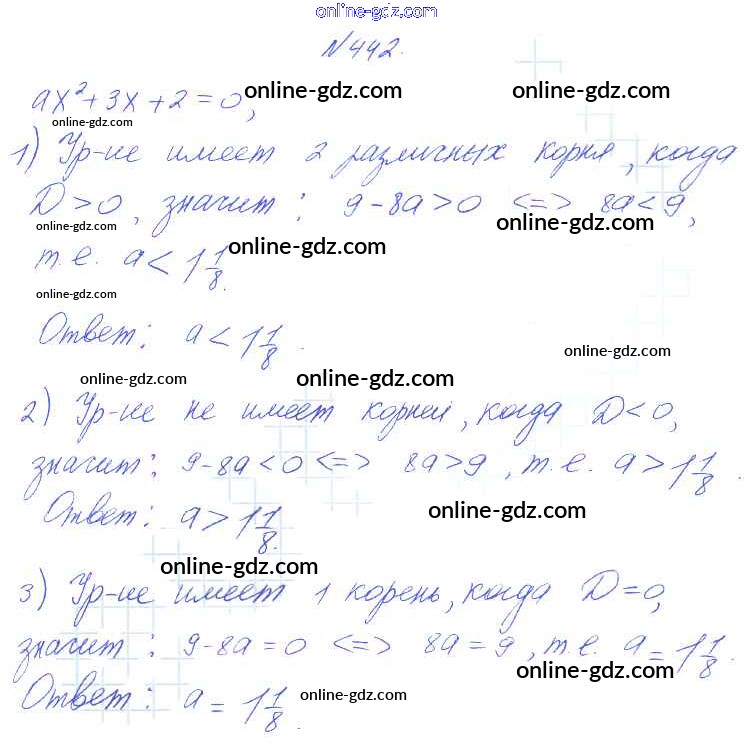 online-gdz.com
№442.
online-gdz.com online-gdz.com
ax²+3x+2=0,
online-gdz.com
1) Ур-ие имеет 2 различных корня, когда
D>0, значит: 9-8a>0 <=> 8a<9,
online-gdz.com online-gdz.com
online-gdz.com
т.е. a<1 1/8.
online-gdz.com
Ответ: a<1 1/8.
online-gdz.com
online-gdz.com online-gdz.com
2) Ур-ие не имеет корней, когда D<0,
значит: 9-8a<0 <=> 8a>9, т.е. a>1 1/8.
Ответ: a>1 1/8.
online-gdz.com
online-gdz.com
3) Ур-ие имеет 1 корень, когда D=0,
значит: 9-8a=0 <=> 8a=9, т.е. a=1 1/8.
online-gdz.com
Ответ: a=1 1/8.
online-gdz.com